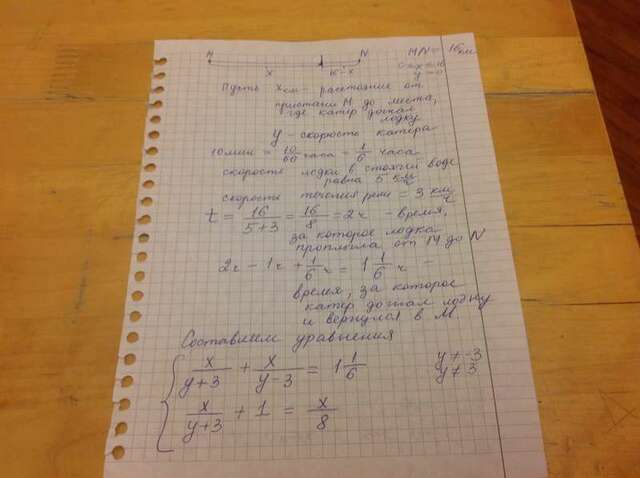 M N MN = 16 км
x 16-x 0 < x < 16
y > 0
Пусть x км - расстояние от
пристани M до места,
где катер догнал
лодку
y - скорость катера
10 мин = 10/60 часа = 1/6 часа
скорость лодки в стоячей воде
равна 5 км/ч
скорость течения реки = 3 км/ч
t = 16/(5+3) = 16/8 = 2ч - время,
за которое лодка
проплыла от M до N
2ч - 1ч + 1/6 ч = 1 1/6 ч -
время, за которое
катер догнал лодку
и вернулся в M.
Составляем уравнения
x/(y+3) + x/(y-3) = 1 1/6 y ≠ -3
y ≠ 3
x/(y+3) + 1 = x/8